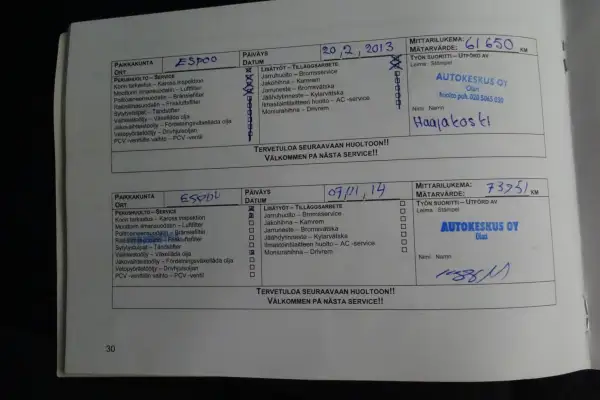 PAIKKAKUNTA ESPOO PÄIVÄYS 20,2,2013 MITTARILUKEMA: 61650 KM
ORT DATUM MÄTARVÄRDE:
PERUSHUOLTO – SERVICE LISÄTYÖT – TILLÄGGSARBETE TYÖN SUORITTI – UTFÖRD AV
Korin tarkastus – Kaross inspektion Jarruhuolto – Bromsservice Leima Stämpel
Moottorin ilmansuodatin – Luftfilter Jakohihna – Kamrem
Polttoainesuodatin – Bränslefilter Jarruneste – Bromsvätska
Raitisilmasuodatin – Friskluftsfilter Jäähdytinneste – Kylarvätska
Sytytystulpat – Tändstifter Ilmastointilaitteen huolto – AC -service
Vaihteistoöljy – Växellåda olja Moniurahihna – Drivrem
Jakovaihteistoöljy – Fördelningsväxellåda olja
Vetopyörästööljy – Drivhjulsoljan
PCV -venttiilin vaihto – PCV -ventil
AUTOKESKUS OY
Olari
huolto puh. 020 5065 020
Nimi Namn
Haajakoski
TERVETULOA SEURAAVAAN HUOLTOON!!
VÄLKOMMEN PÅ NÄSTA SERVICE!!
PAIKKAKUNTA PÄIVÄYS 07/11,14 MITTARILUKEMA: 73251 KM
ORT DATUM MÄTARVÄRDE:
PERUSHUOLTO – SERVICE LISÄTYÖT – TILLÄGGSARBETE TYÖN SUORITTI – UTFÖRD AV
Korin tarkastus – Kaross inspektion Jarruhuolto – Bromsservice Leima Stämpel
Moottorin ilmansuodatin – Luftfilter Jakohihna – Kamrem
Polttoainesuodatin – Bränslefilter Jarruneste – Bromsvätska
Raitisilmasuodatin – Friskluftsfilter Jäähdytinneste – Kylarvätska
Sytytystulpat – Tändstifter Ilmastointilaitteen huolto – AC -service
Vaihteistoöljy – Växellåda olja Moniurahihna – Drivrem
Jakovaihteistoöljy – Fördelningsväxellåda olja
Vetopyörästööljy – Drivhjulsoljan
PCV -venttiilin vaihto – PCV -ventil
AUTOKESKUS OY
Olari
Nimi Namn
TERVETULOA SEURAAVAAN HUOLTOON!!
VÄLKOMMEN PÅ NÄSTA SERVICE!!
30